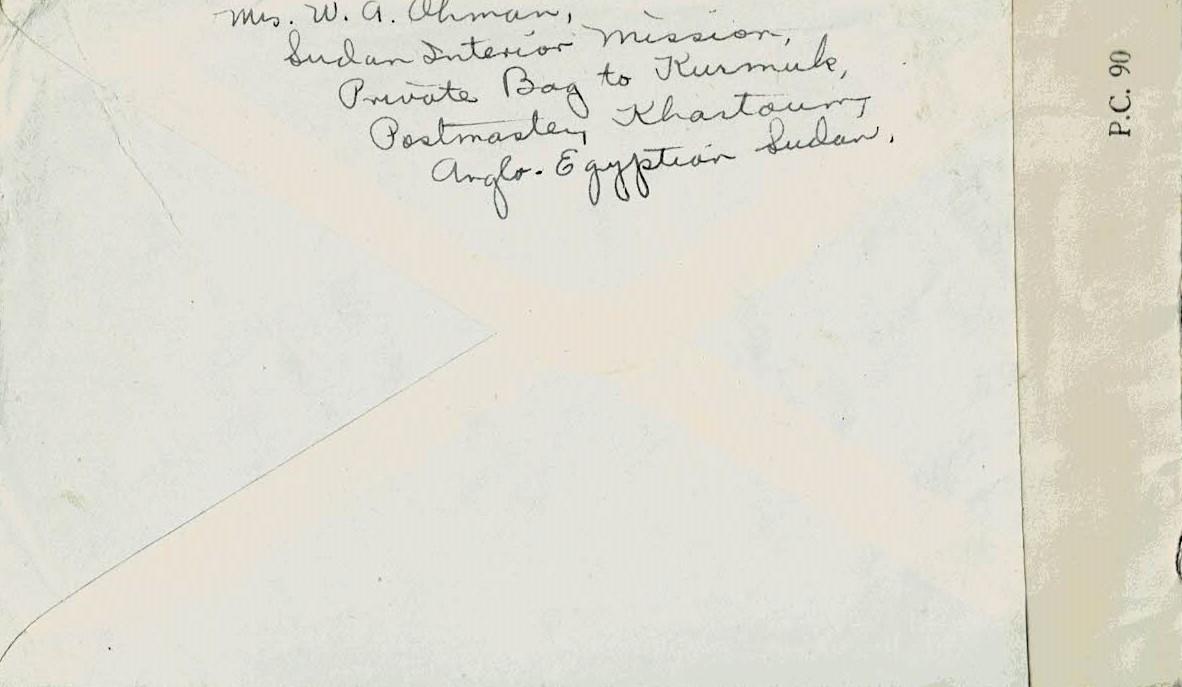 Mrs. W. A. Ohman,
Sudan Interior Mission,
Private Bag to Kurmuk,
Postmaster, Khartoum,
Anglo-Egyptian Sudan.
P.C. 90